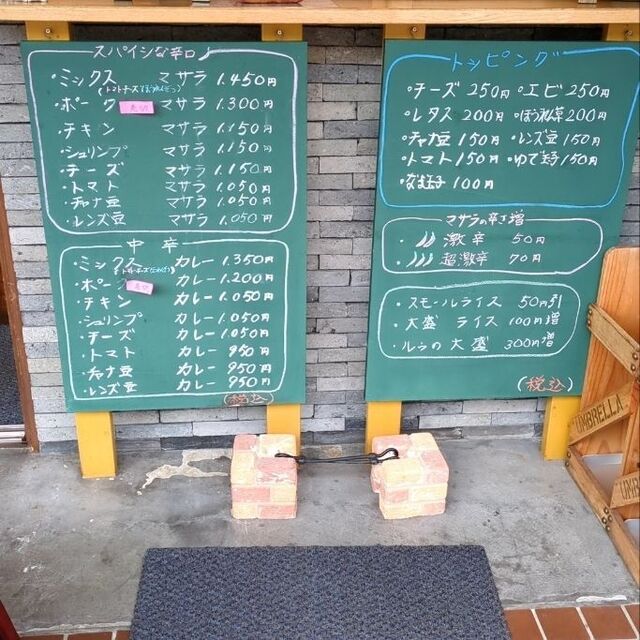 スパイシな辛口
・ミックス マサラ 1.450円
トマトチーズ(ほうれんそう)
・ポーク 売切 マサラ 1.300円
・チキン マサラ 1.150円
・シュリンプ マサラ 1.150円
・チーズ マサラ 1.150円
・トマト マサラ 1.050円
・チャナ豆 マサラ 1.050円
・レンズ豆 マサラ 1.050円
中辛
・ミックス カレー 1.350円
・ポーク 売切 カレー 1.200円
・チキン カレー 1.050円
・シュリンプ カレー 1.050円
・チーズ カレー 1.050円
・トマト カレー 950円
・チャナ豆 カレー 950円
・レンズ豆 カレー 950円
(税込)
トッピング
・チーズ 250円 ・エビ 250円
・レタス 200円 ・ほうれん草 200円
・チャナ豆 150円 ・レンズ豆 150円
・トマト 150円 ・ゆで玉子 150円
・なま玉子 100円
マサラの辛さ増
・激辛 50円
・超激辛 70円
・スモールライス 50円引
・大盛 ライス 100円増
・ルウの大盛 300円増
(税込)
UMBRELLA
UMBRELLA